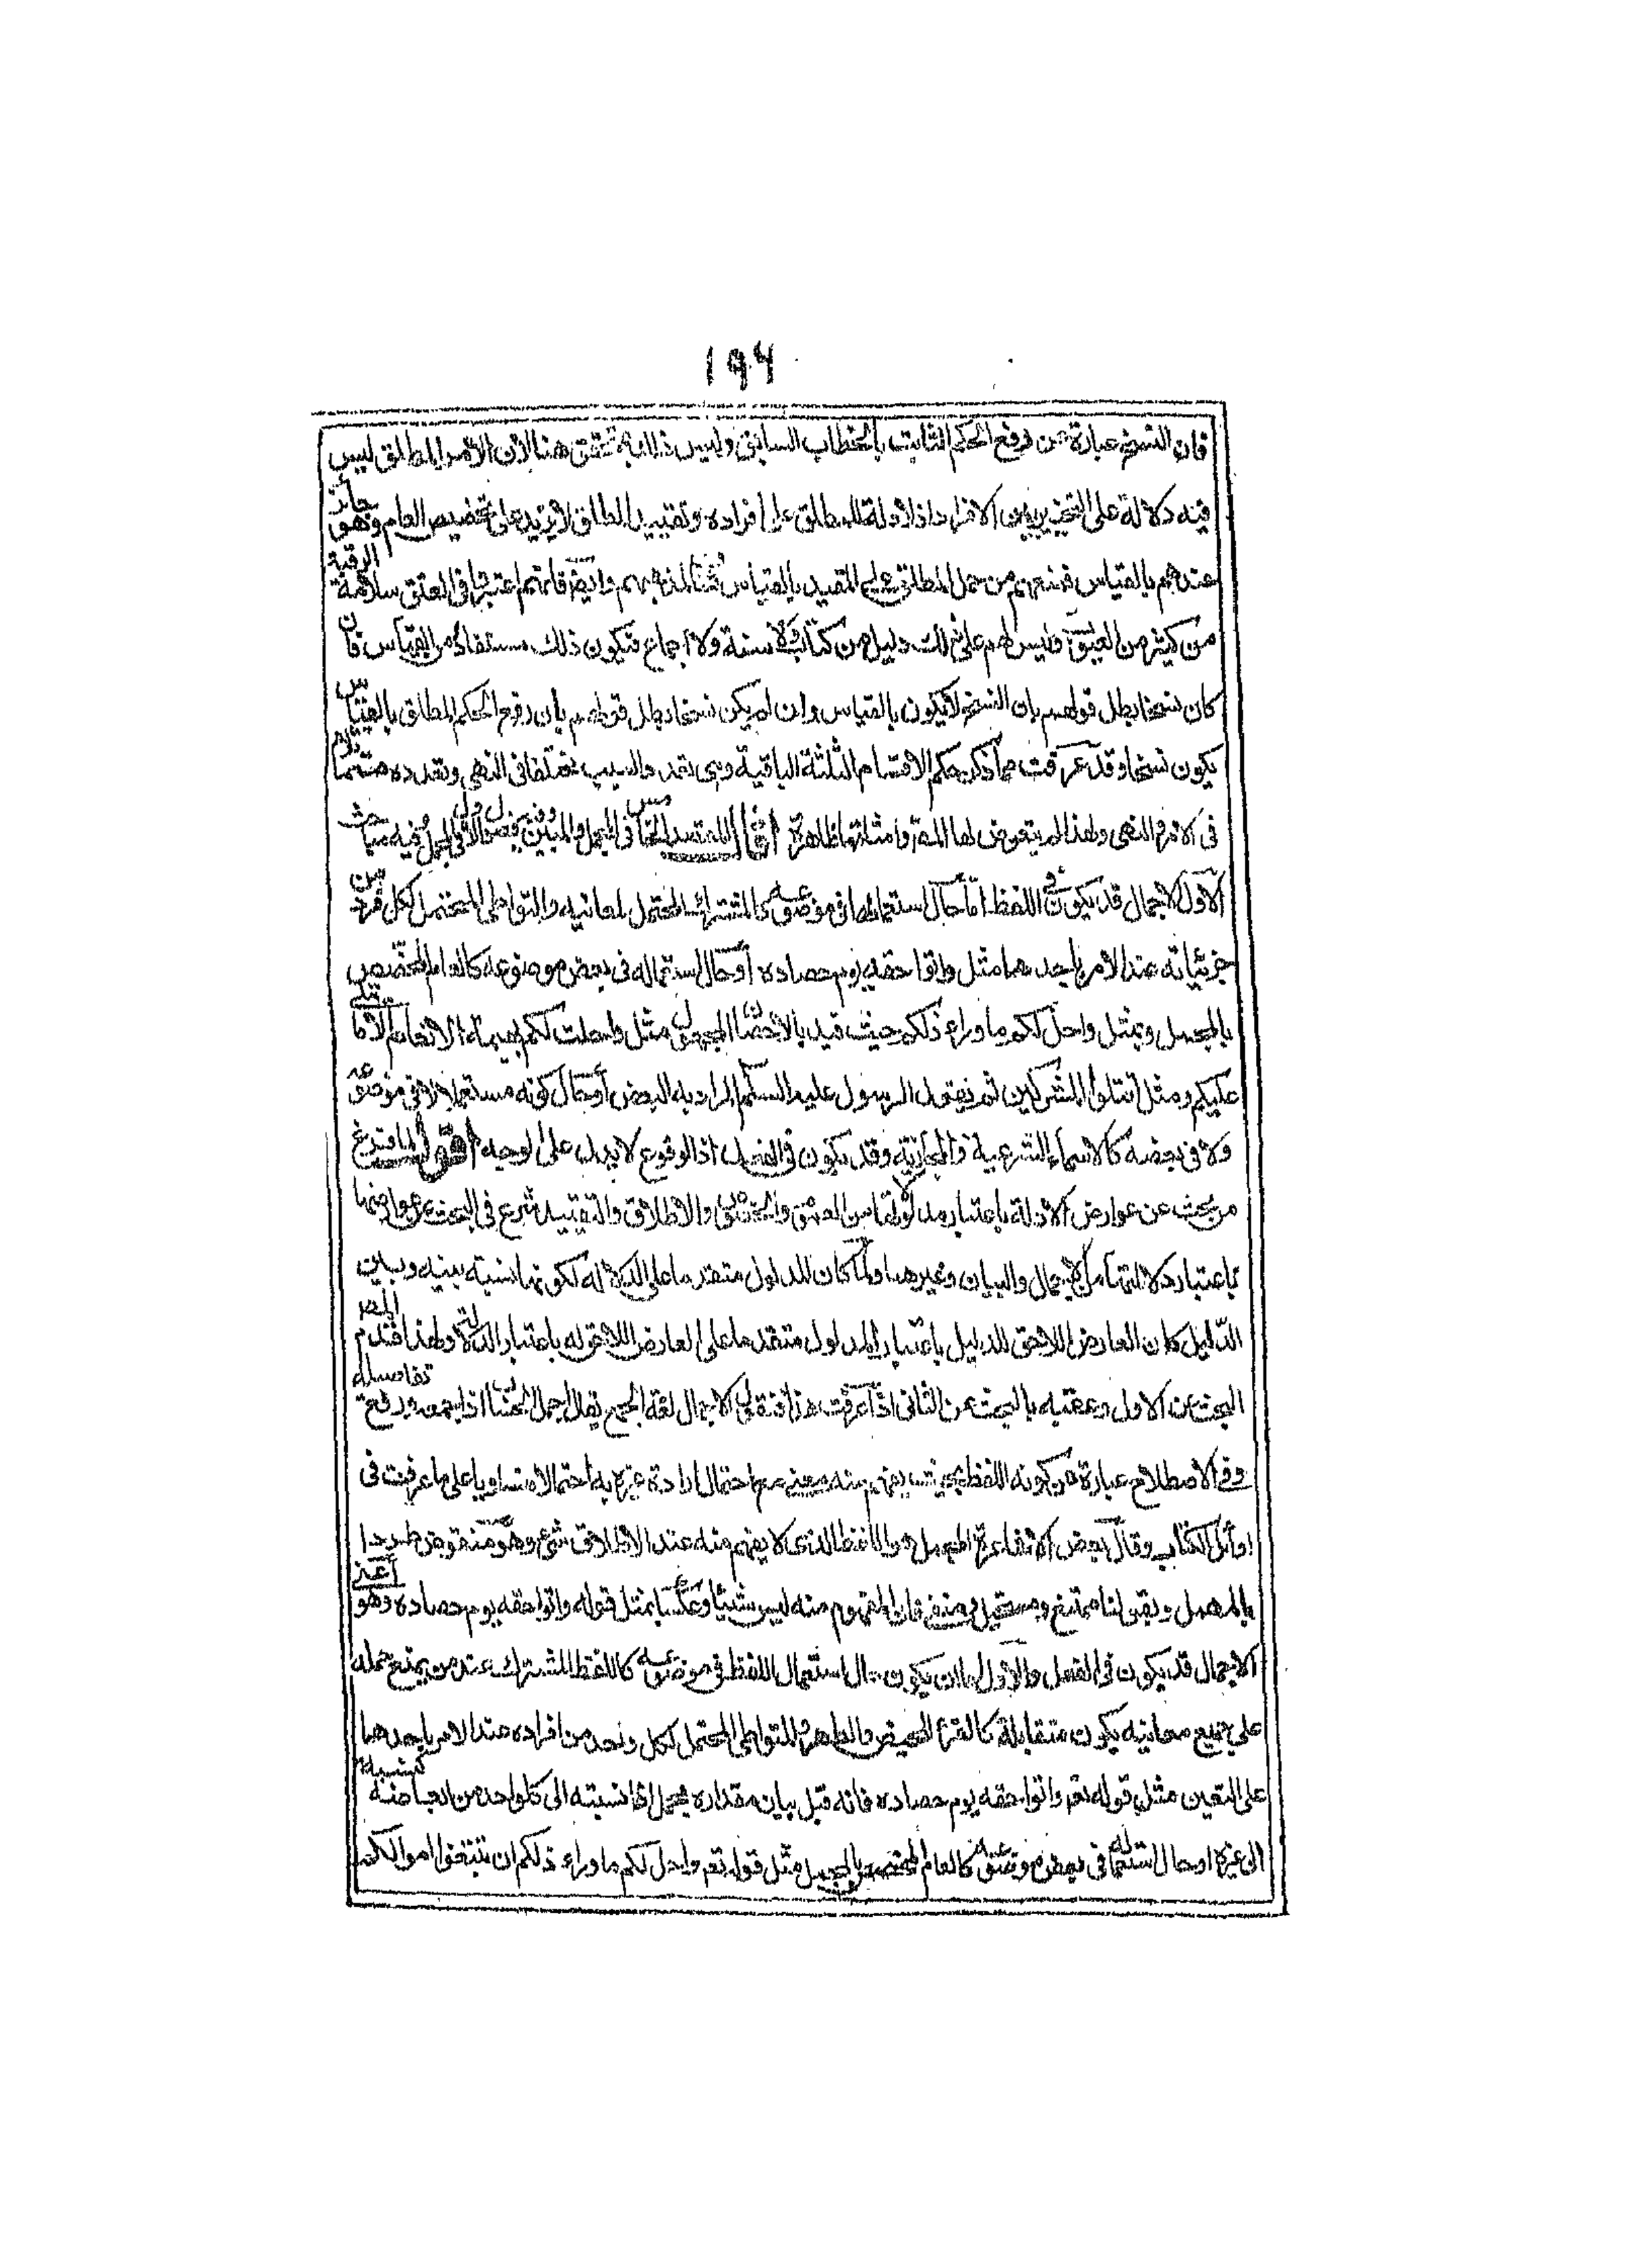 ١٩٦
فان النسخ عبارة عن رفع الحكم الثابت بالخطاب السابق وليس ذلك بمتحقق هنا لان الامر المطلق ليس
فيه دلالة على التخيير بين الافراد اذ لا دلالة للمطلق على افراده وتقييد المطلق لا يزيد على تخصيص العام وهو جائز
عندهم بالقياس فمنعهم من حمل المطلق على المقيد بالقياس لمذهبهم وايضا فانهم اعتبروا فى العتق سلامة الرقبة
من كثير من العيوب وليس لهم على ذلك دليل من كتاب ولا سنة ولا اجماع فيكون ذلك مستفادا من القياس فان
كان نسخا بطل قولهم بان النسخ لا يكون بالقياس وان لم يكن نسخا بطل قولهم بان رفع الحكم المطلق بالقياس
يكون نسخا وقد عرفت مما ذكر حكم الاقسام الثلثة الباقية وهى تعدد السبب مختلفا فى النهى وتعدده متماثلا
فى الامر والنهى ولهذا لم يتعرض لها المص وامثلتها ظاهرة قال المقصد الخامس فى المجمل والمبين وفيه فصول الاول فى المجمل وفيه مباحث
الاول الاجمال قد يكون فى اللفظ اما حال استعماله فى موضوعه كالمشترك المحتمل لمعانيه والمتواطى المحتمل لكل فرد من
جزئياته عند الامر باحدهما مثل واتوا حقه يوم حصاده او حال استعماله فى بعض موضوعه كالعام المخصص
بالمجمل ومثل واحل لكم ما وراء ذلكم حيث قيد بالاحصان المجهول مثل واحلت لكم بهيمة الانعام الا ما يتلى
عليكم ومثل اقتلوا المشركين ثم يقول الرسول عليه السلم المراد به البعض او حال كونه مستعملا لا فى موضوعه
ولا فى بعضه كالاسماء الشرعية والمجازية وقد يكون فى الفعل اذ الوقوع لا يدل على الوجه اقول لما فرغ
من بحث عن عوارض الادلة باعتبار مدلولاتها من العموم والخصوص والاطلاق والتقييد شرع فى البحث عن عوارضها
باعتبار دلالتها من الاجمال والبيان وغيرهما ولما كان المدلول متقدما على الدلالة لكونها نسبة بينه وبين
الدليل كان العارض اللاحق للدليل باعتبار المدلول متقدما على العارض اللاحق له باعتبار الدلالة ولهذا قدم المص
البحث عن الاول وعقبه بالبحث عن الثانى اذا عرفت هذا فنقول الاجمال لغة الجمع يقال اجمل الحساب اذا جمعه ورفع تفاصيله
وفى الاصطلاح عبارة عن كون اللفظ بحيث يفهم منه معنى مع احتمال ارادة غيره به احتمالا متساويا على ما عرفت فى
اوائل الكتاب وقال بعض الاشاعرة المجمل هو اللفظ الذى لا يفهم منه عند الاطلاق شىء وهو منقوض طردا
بالمهمل وبقولنا ممتنع ومستحيل ومنفى فان المفهوم منه ليس شيئا وعكسا بمثل قوله واتوا حقه يوم حصاده وهو اعنى
الاجمال قد يكون فى الفعل والاول اما ان يكون حال استعمال اللفظ فى موضوعه كاللفظ المشترك عند من يمنع حمله
على جميع معانيه يكون متقابلة كالقرء للحيض والطهر والمتواطى المحتمل لكل واحد من افراده عند الامر باحدهما
على التعيين مثل قوله تعم واتوا حقه يوم حصاده فانه قبل بيان مقداره مجمل اذ نسبته الى كل واحد من ابعاضه كنسبته
الى غيره او حال استعماله فى بعض موضوعه كالعام المخصص بالمجمل مثل قوله تعم واحل لكم ما وراء ذلكم ان تبتغوا اموالكم